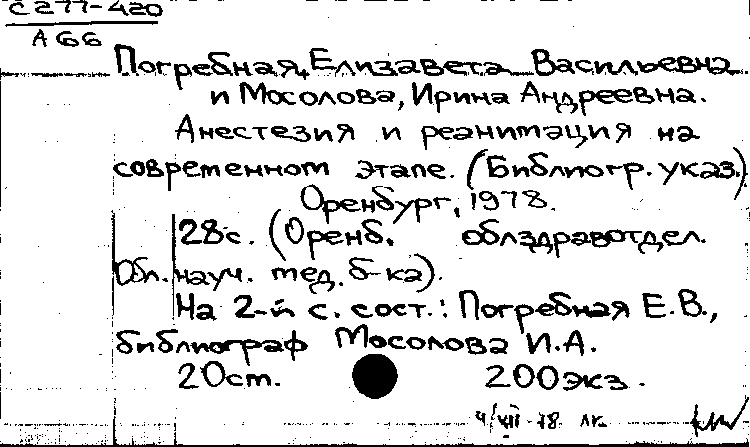 С277-420
А66
Погребная, Елизавета Васильевна
и Мосолова, Ирина Андреевна.
Анестезия и реанимация на
современном этапе. (Библиогр. указ.)
Оренбург, 1978.
28с. (Оренб. облздравотдел.
Обл. науч. мед. б-ка).
На 2-й с. сост.: Погребная Е.В.,
библиограф Мосолова И.А.
20см. 200экз.
4/VII-78